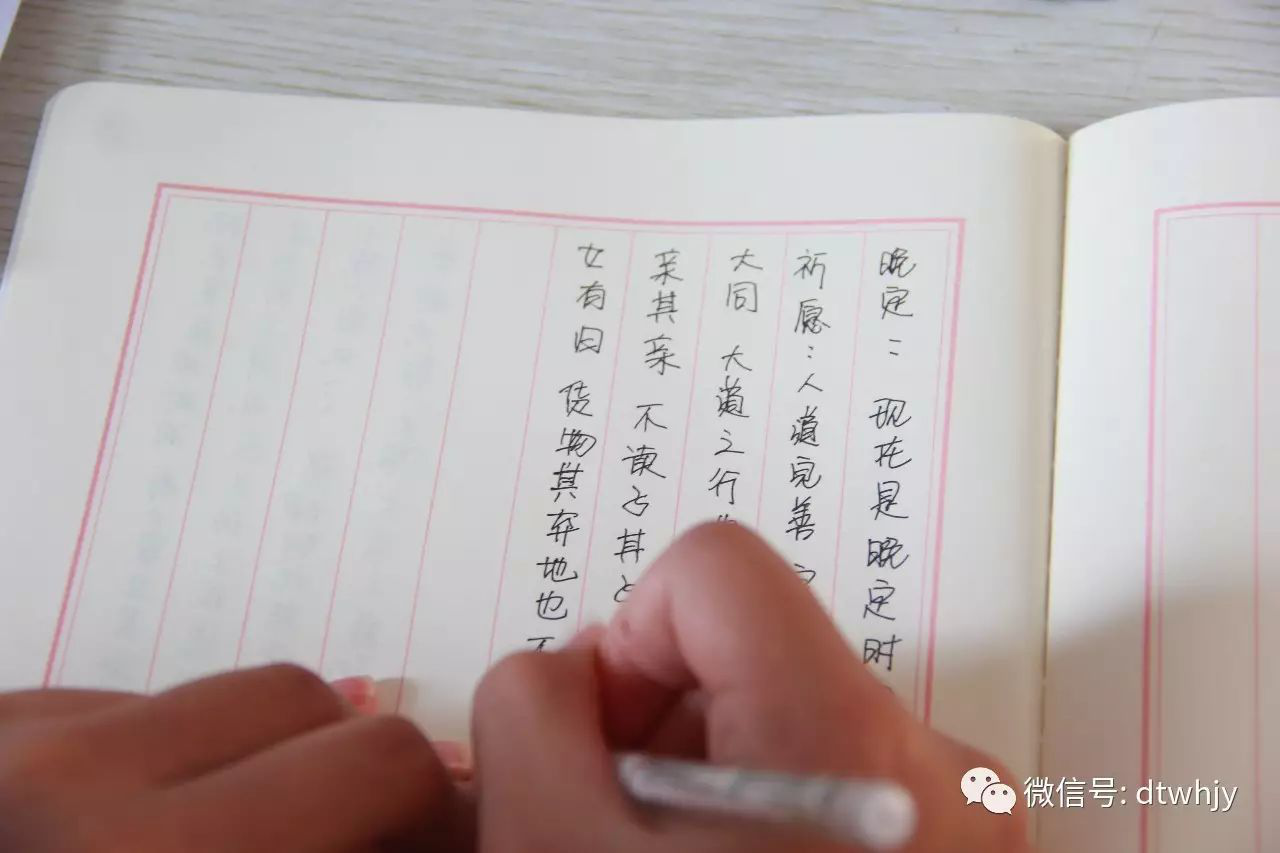 晚定：现在是晚定时
祈愿：人道完善
大同 大道之行
亲其亲 不读
女有归 货物其弃地也 不
微信号: dtwhjy